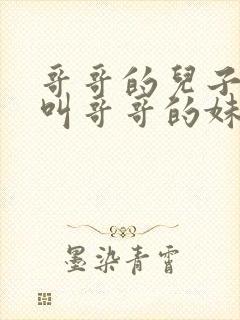 哥哥的兒子
叫哥哥的妹
墨染青霄